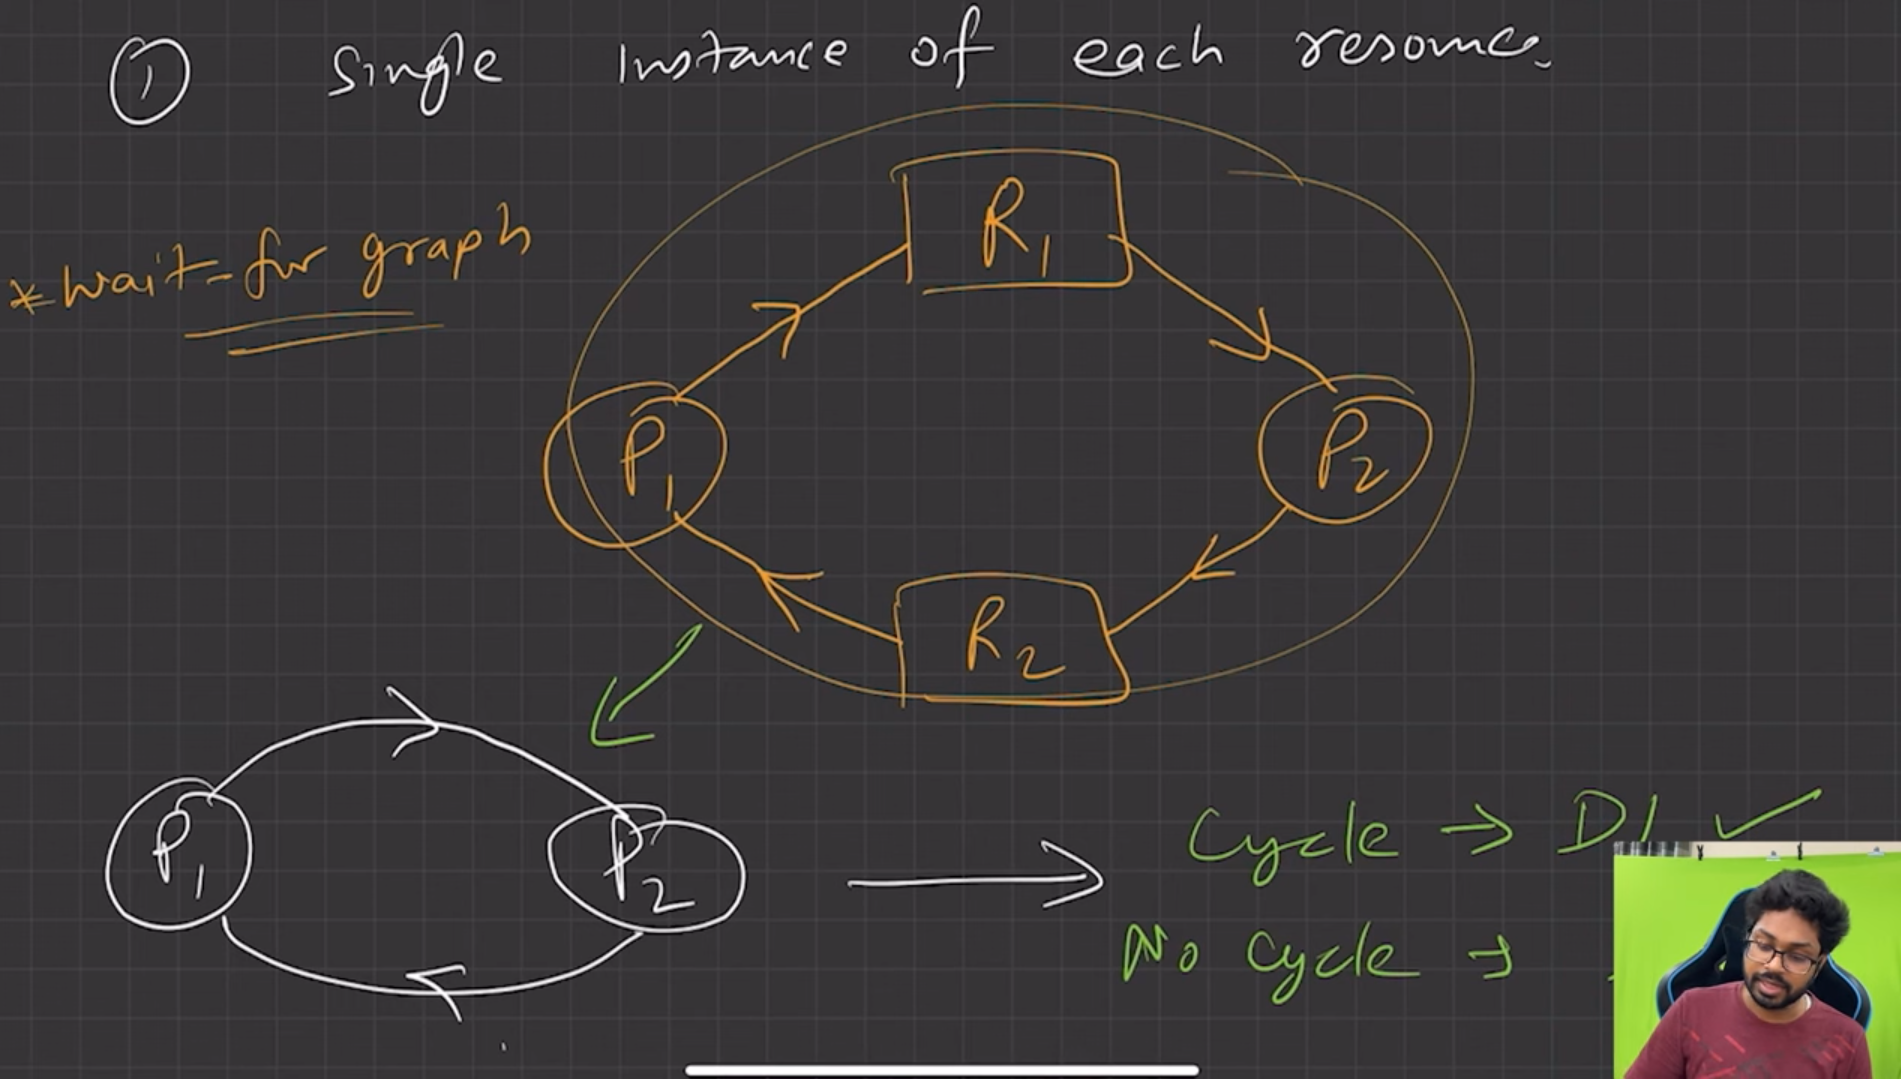 ① Single Instance of each resource.
*wait-for graph
R1
P1
P2
R2
P1
P2
Cycle → DL ✓
No Cycle →